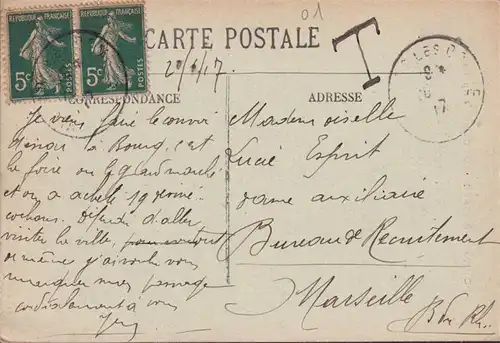 01
RÉPUBLIQUE FRANÇAISE
5c
POSTES
RÉPUBLIQUE FRANÇAISE
5c
POSTES
CARTE POSTALE
T
20/6/17
CORRESPONDANCE
ADRESSE
Je viens faire le convoi
à Bourg, c'est
la foire ou Gd marché
et on a acheté 19
cochons. Défendu d'aller
visiter la ville,
de même j'ai voulu vous
marquer mon passage
cordialement à vous
Mademoiselle
Lucie Esprit
dame auxiliaire
Bureau de Recrutement
Marseille
B du Rh.
17